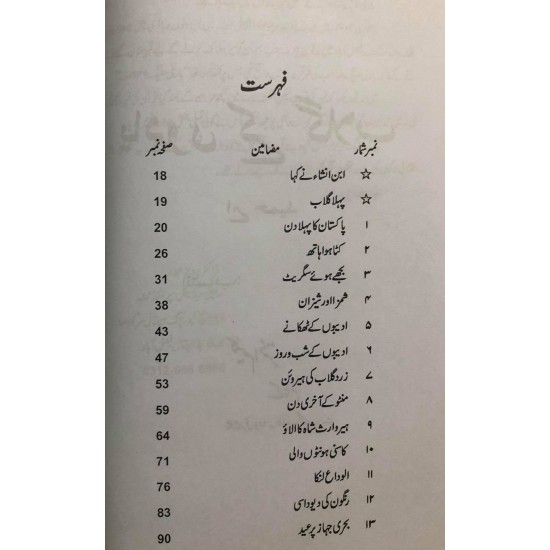 فہرست
نمبر شمار مضامین صفحہ نمبر
☆ ابن انشاء نے کہا 18
☆ پہلا گلاب 19
۱ پاکستان کا پہلا دن 20
۲ کٹا ہوا ہاتھ 26
۳ بجھے ہوئے سگریٹ 31
۴ شمزا اور شیزان 38
۵ ادیبوں کے ٹھکانے 43
۶ ادیبوں کے شب و روز 47
۷ زرد گلاب کی ہیروئن 53
۸ منٹو کے آخری دن 59
۹ ہیر وارث شاہ کا الاؤ 64
۱۰ کاسنی ہونٹوں والی 71
۱۱ الوداع لنکا 76
۱۲ رنگون کی دیوداسی 83
۱۳ بحری جہاز پر عید 90